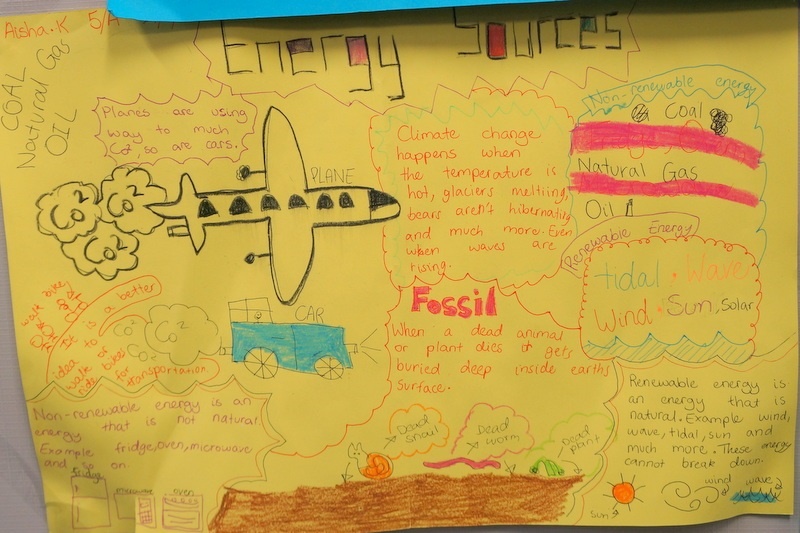 Aisha.K 5/A
Energy Sources
COAL
Natural Gas
OIL
Planes are using
way to much
Co², so are cars.
Co²
Co²
Co²
PLANE
Climate change
happens when
the temperature is
hot, glaciers meltiing,
bears aren't hibernating
and much more. Even
when waves are
rising.
Non-renewable energy
Coal
Natural Gas
Oil
Renewable Energy
tidal · Wave
Wind · Sun, Solar
walk bike
It is a better
idea
walk or
ride bike
for
transportation.
Co²
Co²
CAR
Fossil
When a dead animal
or plant dies it gets
buried deep inside earths
surface.
Non-renewable energy is an
energy that is not natural
Example fridge, oven, microwave
and so on.
fridge
microwave
oven
Dead
snail
Dead
worm
Dead
plant
Renewable energy is
an energy that is
natural. Example wind,
wave, tidal, sun and
much more. These energy
cannot break down.
sun
wind
wave